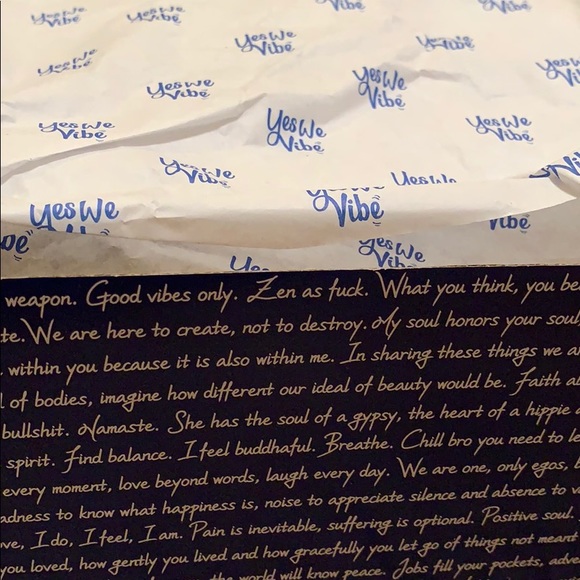 Yes We Vibe
Yes We Vibe
Yes We Vibe
Yes We Vibe
Yes We Vibe
Yes We Vibe
Yes We Vibe
Yes We Vibe
Yes We Vibe
Yes We Vibe
Yes We
Yes We
Vibe
Vibe
Yes We Vibe
weapon. Good vibes only. Zen as fuck. What you think, you be
te. We are here to create, not to destroy. My soul honors your soul
within you because it is also within me. In sharing these things we a
l of bodies, imagine how different our ideal of beauty would be. Faith a
bullshit. Namaste. She has the soul of a gypsy, the heart of a hippie
spirit. Find balance. I feel buddhaful. Breathe. Chill bro you need to le
every moment, love beyond words, laugh every day. We are one, only egos, b
adness to know what happiness is, noise to appreciate silence and absence to v
ve, I do, I feel, I am. Pain is inevitable, suffering is optional. Positive soul.
you loved, how gently you lived and how gracefully you let go of things not meant
the world will know peace. Jobs fill your pockets, adve